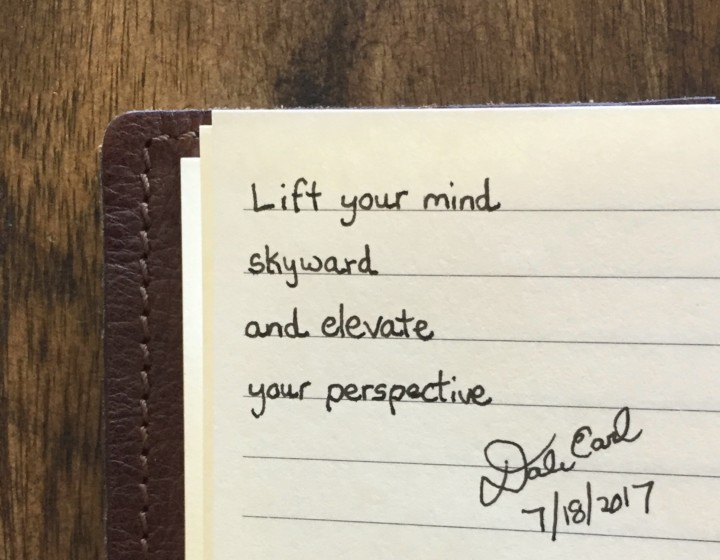 Lift your mind
skyward
and elevate
your perspective
Dale Carl
7/18/2017